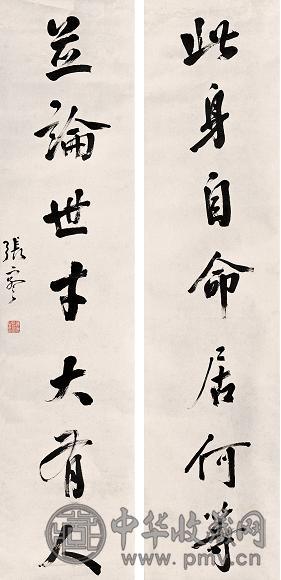 此身自命居何等
並論世才大有人
張謇
中华收藏网